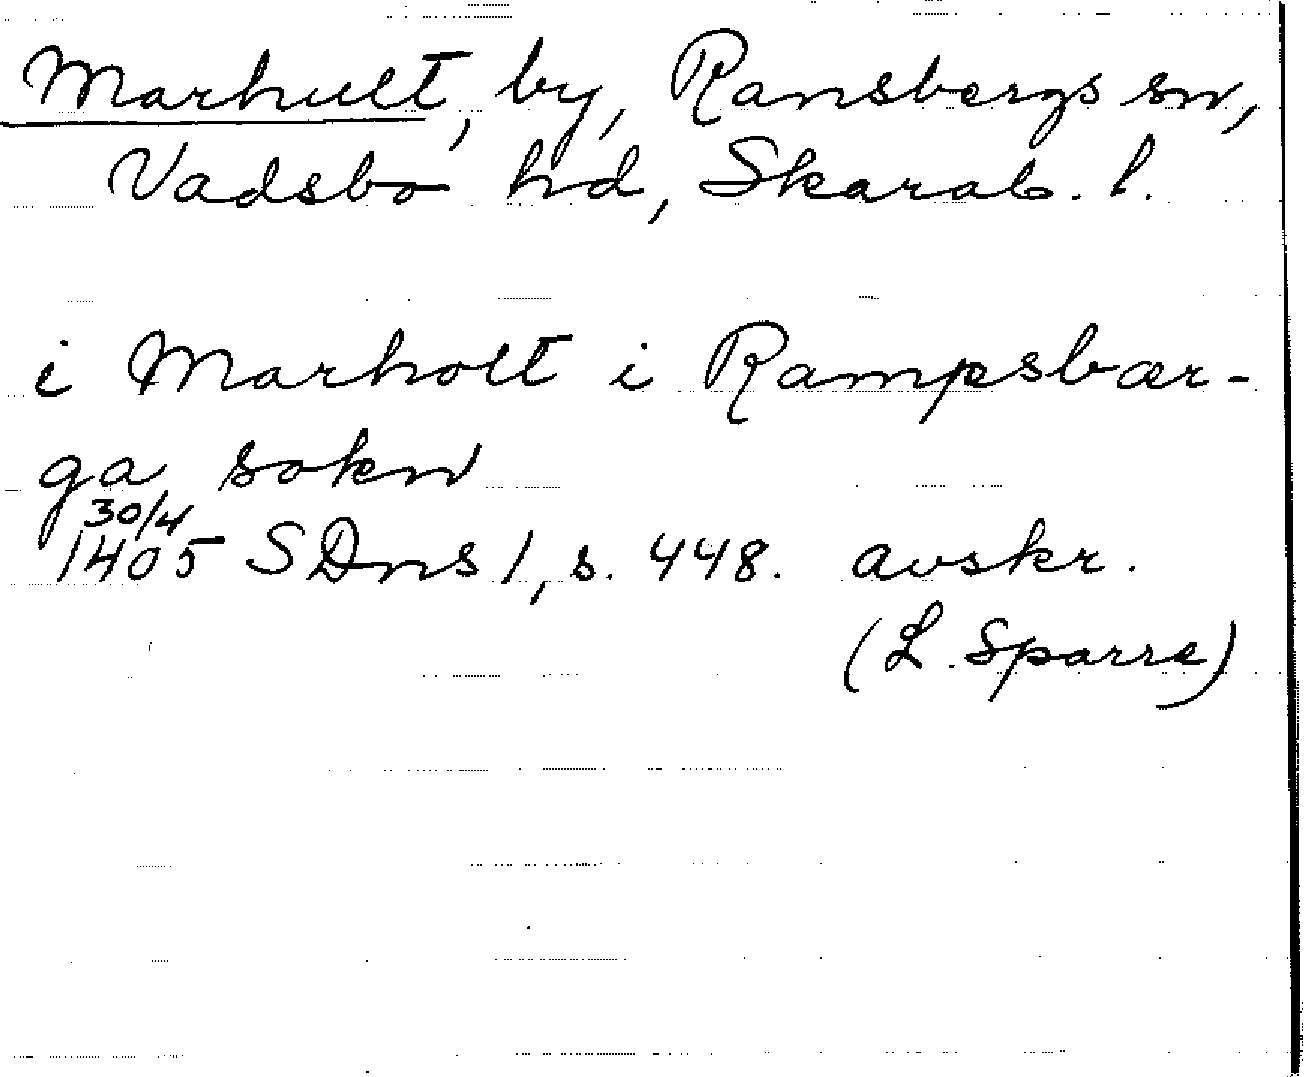 Marhult, by, Ransbergs sn,
Vadsbo hd, Skarab. l.
i Marholt i Rampsbær-
ga sokn
30/4
1405 SDns 1, s. 448. avskr.
(L. Sparre)